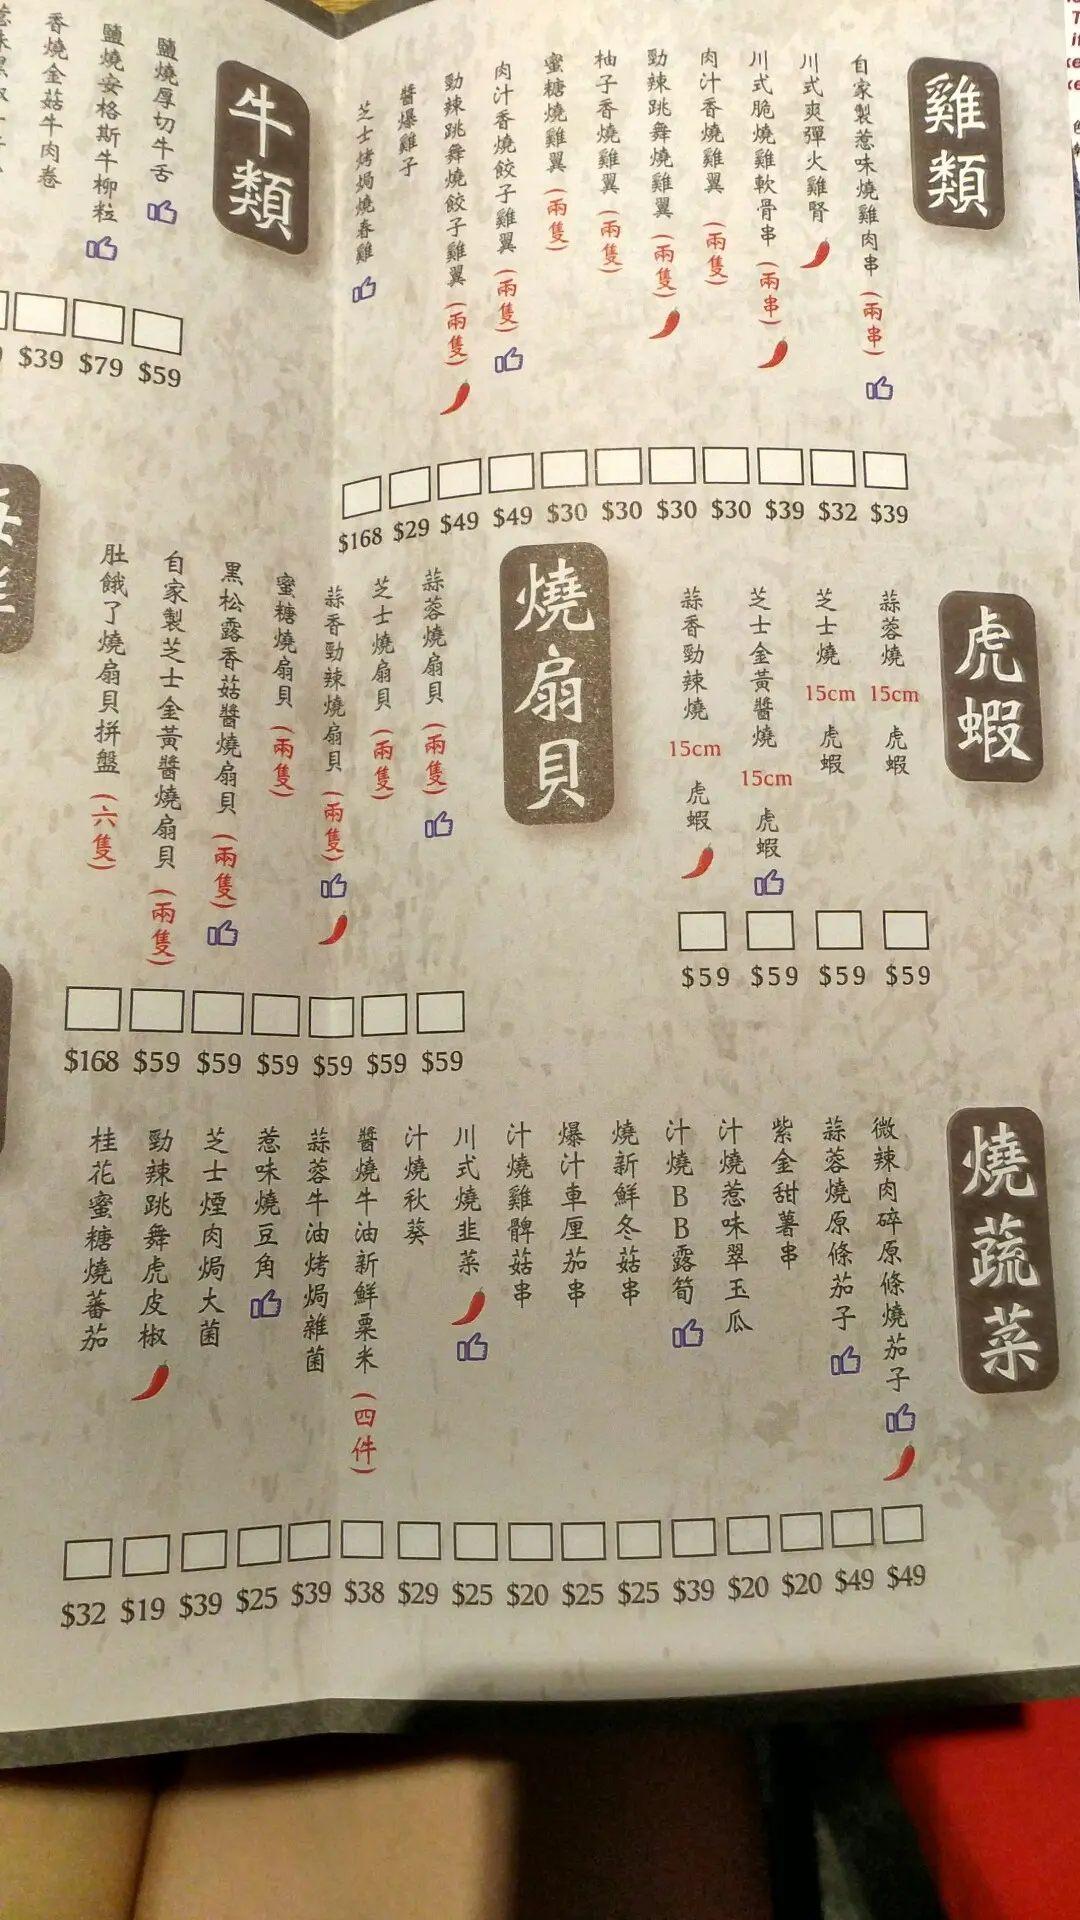 雞類
自家製惹味燒雞肉串(兩串)
$39
川式爽彈火雞腎
$32
川式脆燒雞軟骨串(兩串)
$39
肉汁香燒雞翼(兩隻)
$30
勁辣跳舞燒雞翼(兩隻)
$30
柚子香燒雞翼(兩隻)
$30
蜜糖燒雞翼(兩隻)
$30
肉汁香燒餃子雞翼(兩隻)
$49
勁辣跳舞燒餃子雞翼(兩隻)
$49
醬爆雞子
$29
芝士烤焗燒春雞
$168
牛類
鹽燒厚切牛舌
$59
鹽燒安格斯牛柳粒
$79
香燒金菇牛肉卷
$39
虎蝦
蒜蓉燒 15cm 虎蝦
$59
芝士燒 15cm 虎蝦
$59
芝士金黃醬燒 15cm 虎蝦
$59
蒜香勁辣燒 15cm 虎蝦
$59
燒扇貝
蒜蓉燒扇貝(兩隻)
$59
芝士燒扇貝(兩隻)
$59
蒜香勁辣燒扇貝(兩隻)
$59
蜜糖燒扇貝(兩隻)
$59
黑松露香菇醬燒扇貝(兩隻)
$59
自家製芝士金黃醬燒扇貝(兩隻)
$59
肚餓了燒扇貝拼盤(六隻)
$168
燒蔬菜
微辣肉碎原條燒茄子
$49
蒜蓉燒原條茄子
$49
紫金甜薯串
$20
汁燒惹味翠玉瓜
$20
汁燒BB露筍
$39
燒新鮮冬菇串
$25
爆汁車厘茄串
$25
汁燒雞髀菇串
$20
川式燒韭菜
$25
汁燒秋葵
$29
醬燒牛油新鮮粟米(四件)
$38
蒜蓉牛油烤焗雜菌
$39
惹味燒豆角
$25
芝士煙肉焗大菌
$39
勁辣跳舞虎皮椒
$19
桂花蜜糖燒蕃茄
$32